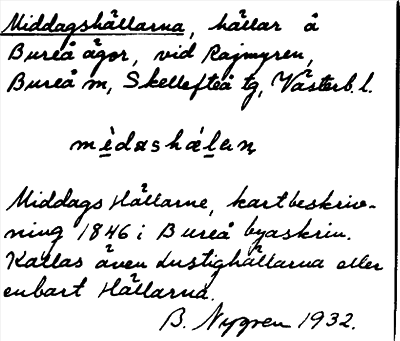 Middagshällarna, hällar å
Bureå ägor, vid Rajmyren,
Bureå sn, Skellefteå tg, Västerb. l.
mèdɑshæ̀lan̥
Middags Hällarne, kartbeskriv-
ning 1846 i Bureå byaskrin.
Kallas även Lustighällarna eller
enbart Hällarna.
B. Nygren 1932.